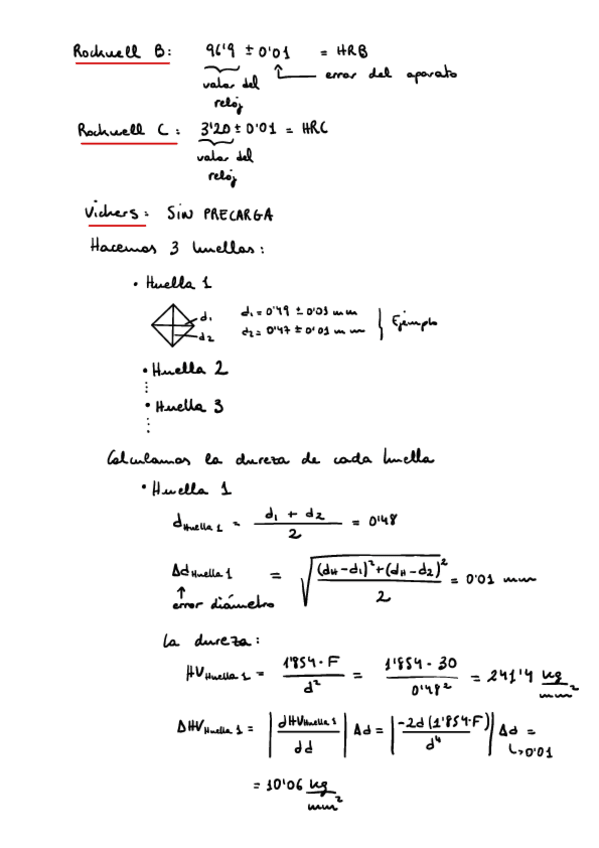 Rockwell B: 96'9 ± 0'01 = HRB
valor del reloj
error del aparato
Rockwell C: 3'20 ± 0'01 = HRC
valor del reloj
Vickers: SIN PRECARGA
Hacemos 3 huellas:
• Huella 1
d1 d1 = 0'49 ± 0'01 mm
d2 d2 = 0'47 ± 0'01 mm } Ejemplo
• Huella 2
⋮
• Huella 3
⋮
Calculamos la dureza de cada huella
• Huella 1
dHuella 1 = (d1 + d2)/2 = 0'48
ΔdHuella 1 = √(((dH-d1)²+(dH-d2)²)/2) = 0'01 mm
↑
error diámetro
La dureza:
HVHuella 1 = (1'854 · F)/d² = (1'854 · 30)/0'48² = 241'4 kg/mm²
ΔHVHuella 1 = |dHVHuella 1/dd| Δd = |-2d(1'854·F)/d⁴| Δd =
↳ 0'01
= 10'06 kg/mm²